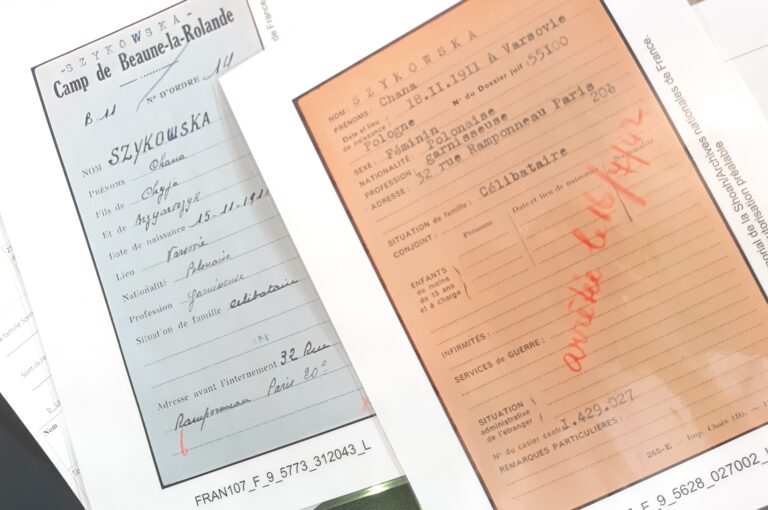 - SZYKOWSKA -
Camp de Beaune-la-Rolande
B. 11 N° D'ORDRE 14
NOM SZYKOWSKA
PRÉNOMS Chana
Fils de Chyja
Et de
Date de naissance 15-11-1911
Lieu Varsovie
Nationalité Polonaise
Profession Garnisseuse
Situat'on de famille célibataire
Adresse avant l'internement 32 Rue
Ramponneau Paris 20e
FRAN107_F_9_5773_312043_L
de France.
NOM: SZYKOWSKA
PRÉNOMS: Chana
Date et lieu de naissance: 18.11.1911 à Varsovie
Pologne N° du Dossier juif: 55100
SEXE: Féminin
NATIONALITÉ: Polonaise
PROFESSION: garnisseuse
ADRESSE: 32 rue Ramponneau Paris 20è
SITUATION de famille: Célibataire
CONJOINT: Prénoms Date et lieu de naissance Nationalité
ENFANTS
de moins
de 15 ans
et à charge
arrêtée le 16/7/42
INFIRMITÉS:
SERVICES DE GUERRE:
SITUATION
administrative
de l'étranger
N° du casier central 1.429.027
REMARQUES PARTICULIÈRES:
265-E — Imp. Chaix (B). —
F_9_5628_027002_L
orial de la Shoah/Archives nationales de France.
utorisation préalable
Nom